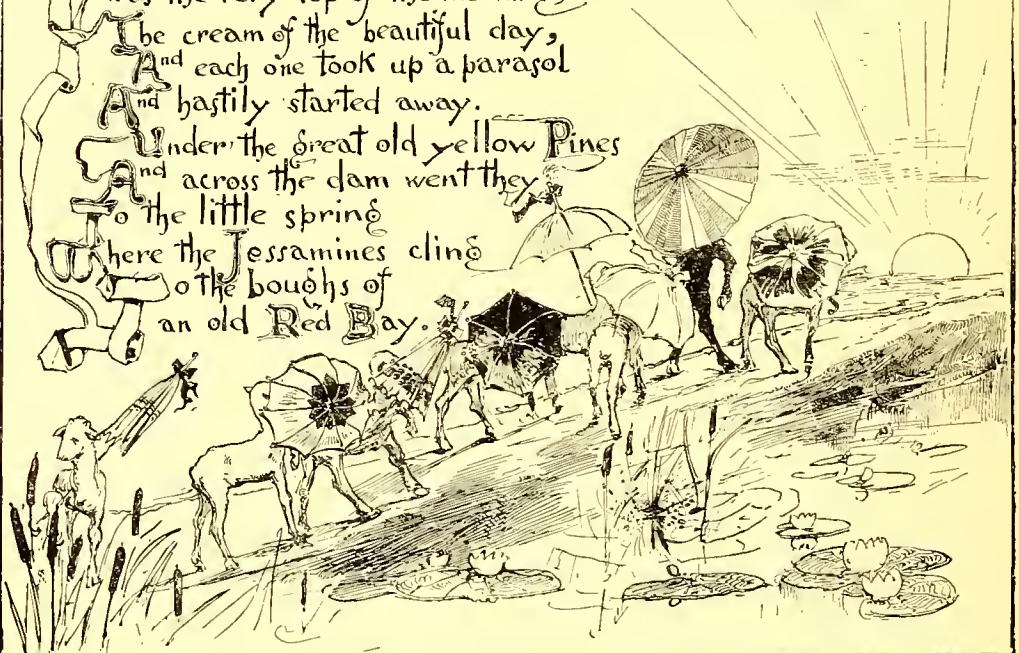 the very top of the
The cream of the beautiful day,
And each one took up a parasol
And hastily started away.
Under the great old yellow Pines
And across the dam went they
To the little spring
Where the Jessamines cling
To the boughs of
an old Red Bay.